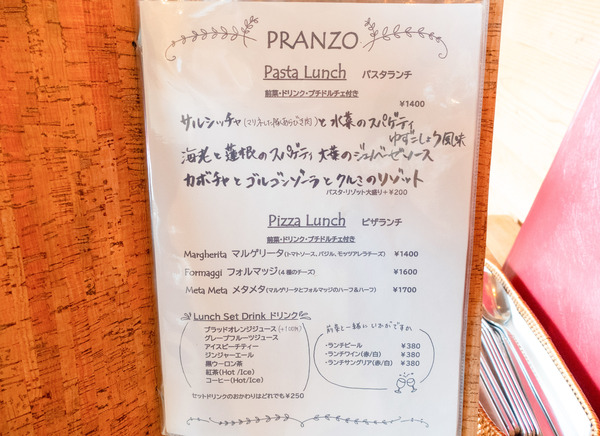 PRANZO
Pasta Lunch パスタランチ
前菜・ドリンク・プチドルチェ付き
¥1400
サルシッチャ(マリネした豚あらびき肉)と水菜のスパゲティ
ゆずこしょう風味
海老と蓮根のスパゲティ 大葉のジェノベーゼソース
カボチャとゴルゴンゾーラとクルミのリゾット
パスタ・リゾット大盛り+¥200
Pizza Lunch ピザランチ
前菜・ドリンク・プチドルチェ付き
Margherita マルゲリータ(トマトソース、バジル、モッツアレラチーズ) ¥1400
Formaggi フォルマッジ(4種のチーズ) ¥1600
Meta Meta メタメタ(マルゲリータとフォルマッジのハーフ&ハーフ) ¥1700
Lunch Set Drink ドリンク
ブラッドオレンジジュース(+100円)
グレープフルーツジュース
アイスピーチティー
ジンジャーエール
黒ウーロン茶
紅茶(Hot /Ice)
コーヒー(Hot/Ice)
セットドリンクのおかわりはどれでも¥250
前菜と一緒にいかがですか
・ランチビール ¥380
・ランチワイン(赤/白) ¥380
・ランチサングリア(赤/白) ¥380